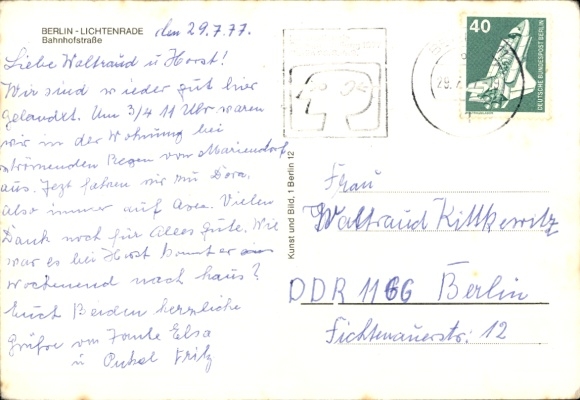 BERLIN - LICHTENRADE
Bahnhofstraße
den 29.7.77.
Liebe Waltraud u Horst!
Wir sind wieder gut hier
gelandet. Um 3/4 11 Uhr waren
wir in der Wohnung bei
strömenden Regen von Mariendorf
aus. Jetzt fahren wir mit Dora,
also immer auf Axe. Vielen
Dank noch für Alles Gute. Wie
war es bei Horst konnte er
Wochenend nach haus?
Euch Beiden herzliche
Grüße von Tante Elsa
u Onkel Fritz
Kunst und Bild, 1 Berlin 12
40
DEUTSCHE BUNDESPOST BERLIN
29.7.
Frau
Waltraud Kittkewitz
DDR 1166 Berlin
Fichtenauerstr. 12